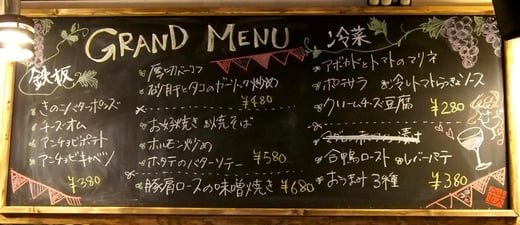 GRAND MENU
鉄板
きのこバターポンズ
チーズオム
アンチョビポテト
アンチョビキャベツ
¥380
厚切りベーコン
砂肝とタコのガーリック炒め
¥480
お好焼き 焼そば
ホルモン炒め
ホタテのバターソテー
¥580
豚肩ロースの味噌焼き ¥680
冷菜
アボカドとトマトのマリネ
ポテサラ 冷しトマトらっきょソース
クリームチーズ豆腐
¥280
合鴨ロースト レバーパテ
おつまみ3種
¥380